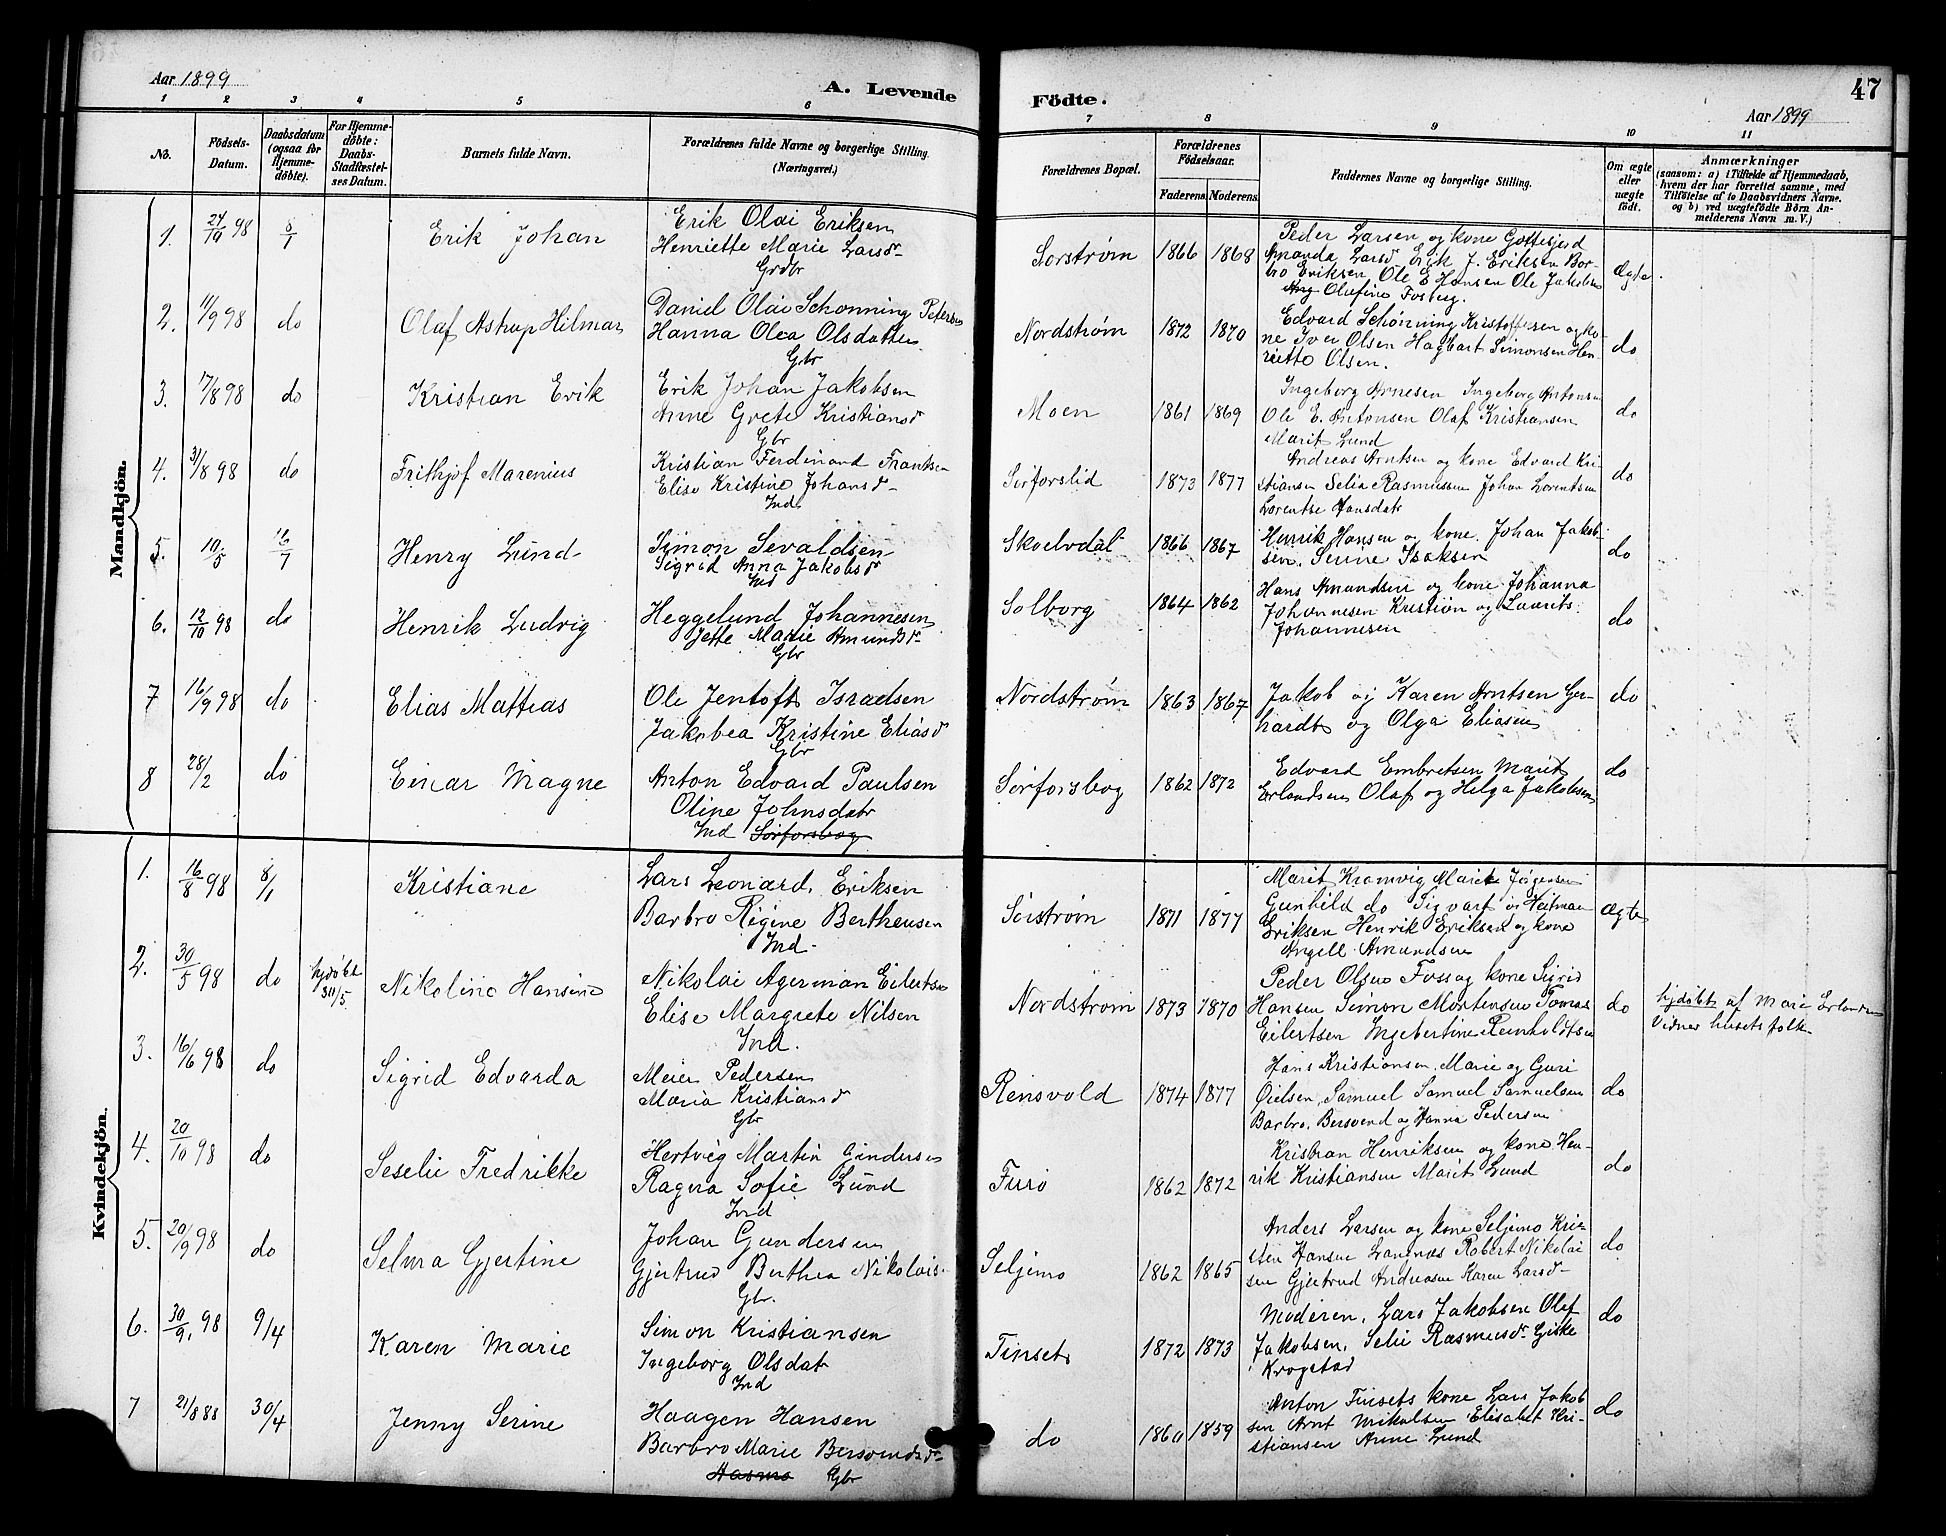 Aar 1899
A. Levende
1 2 3 4 5 6
No.
Födsels-
Datum.
Daabsdatum
(ogsaa for
Hjemme-
döbte).
For Hjemme-
döbte:
Daabs-
Stadfæstel-
ses Datum.
Barnets fulde Navn.
Forældrenes fulde Navne og borgerlige Stilling.
(Næringsvei.)
Mandkjön.
1. 24/10 98 8/1 Erik Johan
Erik Olai Eriksen
Henriette Marie Larsd
Grdbr
2. 11/9 98 do Olaf Astrup Hilmar
Daniel Olai Schonning Petersen
Hanna Olea Olsdatter
Gbr
3. 17/8 98 do Kristian Erik
Erik Johan Jakobsen
Anne Grete Kristiansd
Gbr
4. 31/8 98 do Frithjof Marenius
Kristian Ferdinand Frantsen
Elise Kristine Johansd
Ind
5. 10/5 16/7 Henry Lund
Simon Sevaldsen
Sigrid Anna Jakobsd
Ind
6. 12/10 98 do Henrik Ludvig
Heggelund Johannesen
Jette Marie Amundsd
Gbr
7 16/9 98 do Elias Mattias
Ole Jentoft Israelsen
Jakobea Kristine Eliasd
Gbr
8 28/2 do Einar Magne
Anton Edvard Paulsen
Oline Johnsdatr
Ind Sørforsbog
Kvindekjön.
1. 16/8 98 8/1 Kristiane
Lars Leonard Eriksen
Barbro Regine Bertheusen
Ind
2. 30/5 98 do hjdøbt 31/5 Nikoline Hansine
Nikolai Agerman Eilertsen
Elise Margrete Nilsen
Ind.
3. 16/6 98 do Sigrid Edvarda
Meier Pedersen
Maria Kristiansd
Gbr
4. 20/10 98 do Seselie Fredrikke
Hertvig Martin Gundersen
Ragna Sofie Lund
Ind
5. 20/9 98 do Selma Gjertine
Johan Gundersen
Gjertrud Berthea Nikolais
Gbr.
6. 30/9 98 9/4 Karen Marie
Simon Kristiansen
Ingeborg Olsdatr
Ind
7 21/8 88 30/4 Jenny Serine
Haagen Hansen
Barbro Marie Bersvendsd
Aasmo Gbr
Födte.
47
Aar 1899
7 8 9 10 11
Forældrenes Bopæl.
Forældrenes
Födselsaar.
Faderens. Moderens.
Faddernes Navne og borgerlige Stilling.
Om ægte
eller
uægte
födt.
Anmærkninger
(saasom: a) i Tilfælde af Hjemmedaab,
hvem der har forrettet samme, med
Tilföielse af to Daabsvidners Navne.
og b) ved uægtefödte Börn An-
melderens Navn m. V.)
Sorstrøm 1866 1868
Peder Larsen og kone
Amanda Larsd Erik J. Eriksen Bar-
bro Eriksen Ole E Hansen Ole Jakobsen
Olufine Fosberg.
Ægte
Nordstrøm 1872 1870
Edvard Schønning Kristoffersen og ko-
ne Iver Olsen Hagbart Simonsen Hen-
riette Olsen.
do
Moen 1861 1869
Ingeborg Arnesen Ingeborg Antonsen
Ole E. Antonsen Olaf Kristiansen
Marit Lund
do
Sørforslid 1873 1877
Andreas Arntsen og kone Edvard Kri-
stiansen Selia Rasmussen Johan Lorentsen
Lorentse Hansdatr
do
Skoelvdal 1866 1867
Henrik Hansen og kone. Johan Jakob-
sen. Serine Isaksen
do
Solborg 1864 1862
Hans Amundsen og kone Johanna
Johannesen Kristian og Laurits
Johannesen
do
Nordstrøm 1863 1867
Jakob og Karen Arntsen Ger-
hardt og Olga Eliasen
do
Sørforsbog 1862 1872
Edvard Embretsen Marit
Erlandsen Olaf og Helga Jakobsen
do
Sörstrøm 1871 1877
Marit Kramvig Marit Jørgensen
Gunhild do Sigvart og Heitman
Eriksen Henrik Eriksen og kone
Angell Amundsen
ægte
Nordstrøm 1873 1870
Peder Olsen Foss og kone Sigrid
Hansen Simon Mortensen Tomas
Eilertsen Ingebertine Reinholdtsen
do
hjdøbt af Marie Erlandsen
Vidner husets folk
Reinsvold 1874 1877
Hans Kristiansen, Marie og Guri
Øielsen, Samuel Samuel Samuelsen
Barbro, Bersvend og Hanna Pedersen
do
Furø 1862 1872
Kristian Henriksen og kone Hen-
rik Kristiansen Marit Lund
do
Seljemo 1862 1865
Anders Larsen og kone Seljemo Kri-
sten Hansen Lanenæs Robert Nikolai
sen Gjertrud Andreasen Karen Larsd
do
Tinset 1872 1873
Moderen, Lars Jakobsen Olaf
Jakobsen, Selie Rasmusd Giske
Krogstad
do
do 1860 1859
Anton Tinsets kone Lars Jakob
sen Arnt Mikalsen Elisabet Kri-
stiansen Anne Lund
do